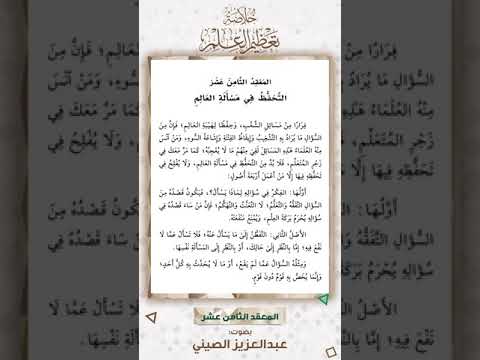 خُلَاصَةُ
تَعْظِيمِ العِلْمِ
المَعْقِدُ الثَّامِنَ عَشَرَ
التَّحَفُّظُ فِي مَسْأَلَةِ العَالِمِ
فِرَارًا مِنْ مَسَائِلِ الشَّغْبِ، وَحِفْظًا لِهَيْبَةِ العَالِمِ؛ فَإِنَّ مِنَ
السُّؤَالِ مَا يُرَادُ بِهِ التَّشْغِيبُ وَإِيقَاظُ الفِتْنَةِ وَإِشَاعَةُ السُّوءِ، وَمَنْ آنَسَ
مِنْهُ العُلَمَاءُ هَذِهِ المَسَائِلَ لَقِيَ مِنْهُمْ مَا لَا يُعْجِبُهُ؛ كَمَا مَرَّ مَعَكَ فِي
زَجْرِ المُتَعَلِّمِ، فَلَا بُدَّ مِنَ التَّحَفُّظِ فِي مَسْأَلَةِ العَالِمِ، وَلَا يُفْلِحُ فِي
تَحَفُّظِهِ فِيهَا إِلَّا مَنْ أَعْمَلَ أَرْبَعَةَ أُصُولٍ:
أَوَّلُهَا: الفِكْرُ فِي سُؤَالِهِ لِمَاذَا يَسْأَلُ؟، فَيَكُونُ قَصْدُهُ مِنَ
السُّؤَالِ التَّفَقُّهَ وَالتَّعَلُّمَ؛ لَا التَّعَنُّتَ وَالتَّهَكُّمَ؛ فَإِنَّ مَنْ سَاءَ قَصْدُهُ فِي
سُؤَالِهِ يُحْرَمُ بَرَكَةَ العِلْمِ، وَيُمْنَعُ مَنْفَعَتَهُ.
الأَصْلُ الثَّانِي: التَّفَطُّنُ إِلَى مَا يَسْأَلُ عَنْهُ؛ فَلَا تَسْأَلْ عَمَّا لَا
نَفْعَ فِيهِ؛ إِمَّا بِالنَّظَرِ إِلَى حَالِكَ، أَوْ بِالنَّظَرِ إِلَى المَسْأَلَةِ نَفْسِهَا.
وَمِثْلُهُ السُّؤَالُ عَمَّا لَمْ يَقَعْ، أَوْ مَا لَا يُحَدَّثُ بِهِ كُلُّ أَحَدٍ؛
وَإِنَّمَا يُخَصُّ بِهِ قَوْمٌ دُونَ قَوْمٍ.
المعقد الثامن عشر
بصوت:
عبدالعزيز الصيني